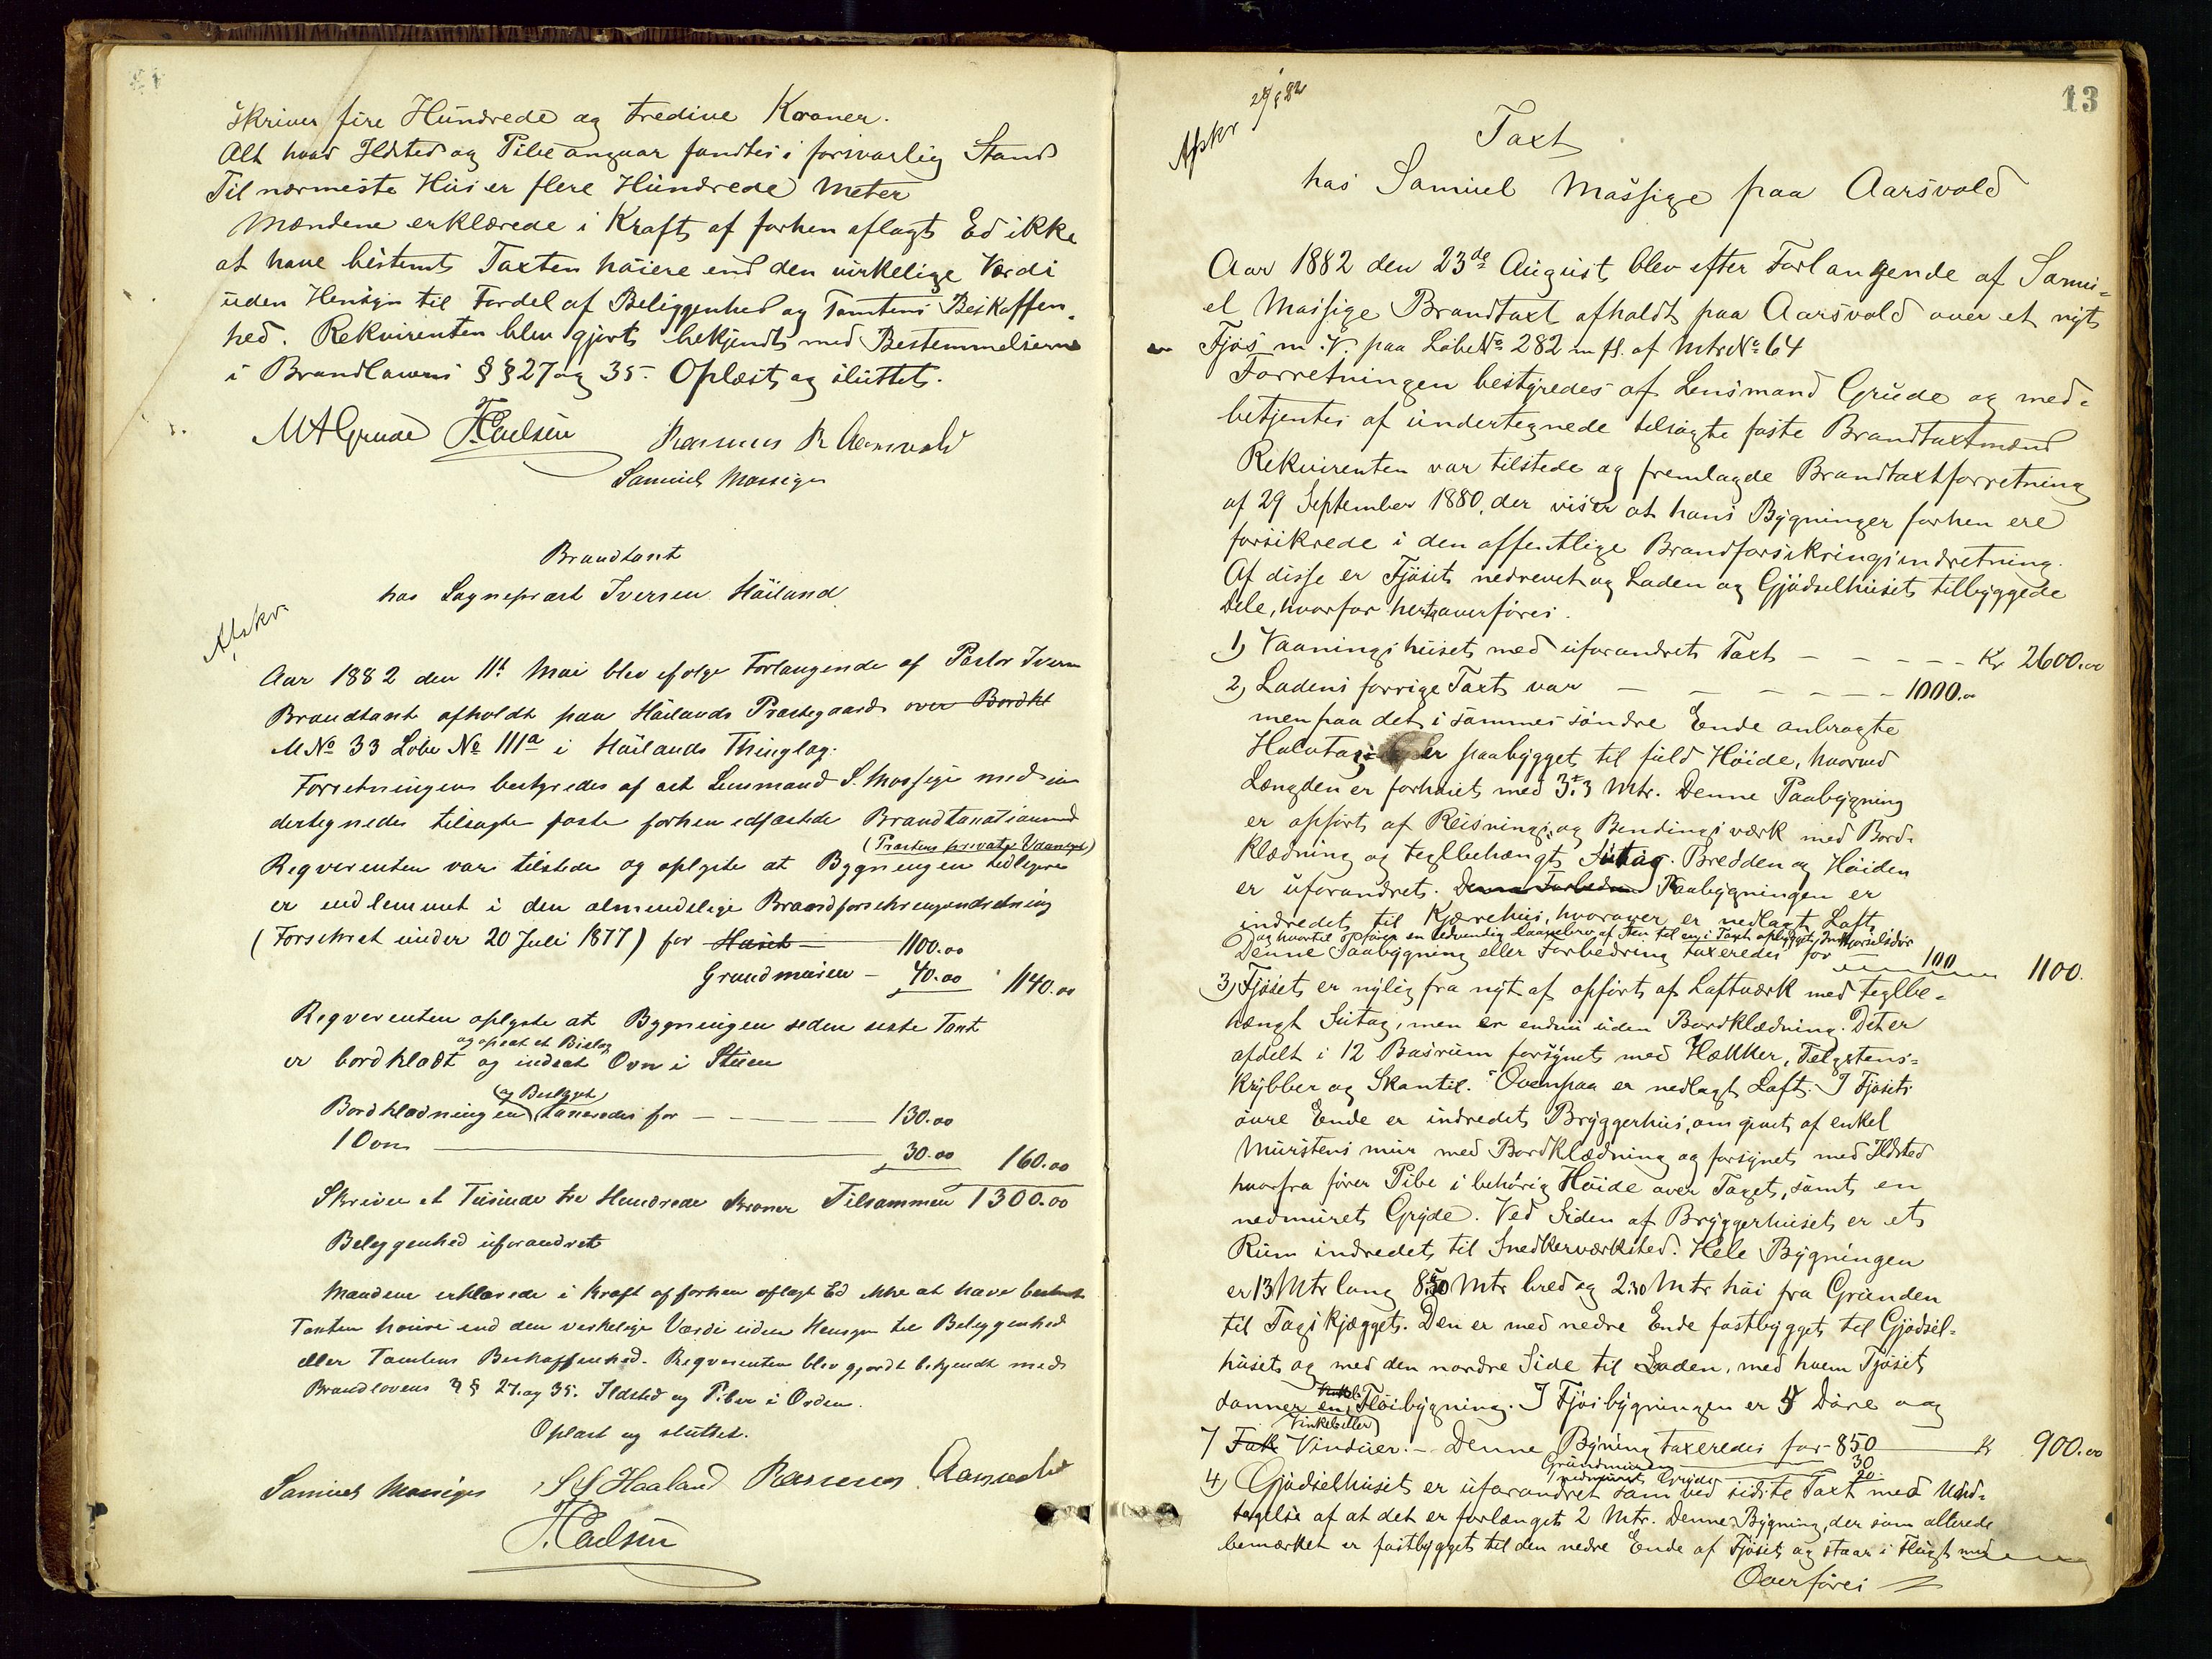 skriver fire Hundrede og tredive Kroner.
Alt hvad Ildsted og Pibe angaar fandtes i forsvarlig Stand
Til nærmeste Hus er flere Hundrede Meter
Mændene erklærede i Kraft af forhen aflagt Ed ikke
at have bestemt Taxten høiere end den virkelige Værdi
uden Hensyn til Fordel af Beliggenhed og Tomtens Beskaffen-
hed. Rekvirenten blev gjort bekjendt med Bestemmelserne
i Brandlovens §§ 27 og 35. Oplæst og sluttet.
MAGrude Carlsen Rasmus R Aarsvold
Samuel Mossige
Brandtaxt
hos Sogneprest Iversen Håiland
Afskr.
Aar 1882 den 11te Mai blev ifølge Forlangende af Pastor Iversen
Brandtaxt afholdt paa Håilands Prestegaard over Bordkl
MNo 33 Løbe No 111a i Håilands Thinglag.
Forretningen bestyredes af cst Lensmand S. Mossige med un
dertegnede tilsagte faste forhen edfæstede Brandtaxationsmænd
(Prestens private Vaanhus)
Reqverenten var tilstede og oplyste at Bygningen tidligere
er indlemmet i den almindelige Brandforsikringsindretning
(Forsikret under 20 Juli 1877) for Huset — 1100.00
Grundmuren — 40.00 1140.00
Reqverenten oplyste at Bygningen seden siste Taxt
og opsat et Bislag
er bordklædt og indsat Ovn i Stuen
(og Beslaget)
Bordklædningen taxeredes for — 130.00
1 Ovn — 30.00 160.00
Skriver et Tusinde tre Hundrede Kroner Tilsammen 1300.00
Beleggenhed uforandret
Mændene erklærede i Kraft af forhen aflagt Ed ikke at have bestemt
Taxten høiere end den verkelige Værdi uden Hensyn til Beleggenhed
eller Tomtens Beskaffenhed. Reqverenten blev gjordt bekjendt med
Brandlovens §§ 27 og 35. Ildsted og Piber i Orden.
Oplæst og sluttet.
Samuel Mossige S S Haaland Rasmus Aarsvold
Carlsen
13
Afskr 29/8 82
Taxt
hos Samuel Mossige paa Aarsvold
Aar 1882 den 23de August blev efter Forlangende af Samu-
el Mossige Brandtaxt afholdt paa Aarsvold over et nyt
Fjøs m.V. paa LøbeNo 282 m fl. af MtrNo 64
Forretningen bestyredes af Lensmand Grude og med-
betjentes af undertegnede tilsagte faste Brandtaxtmænd
Rekvirenten var tilstede og fremlagde Brandtaxtforretning
af 29 September 1880, der viser at hans Bygninger forhen ere
forsikrede i den offentlige Brandforsikringsindretning.
Af disse er Fjøset nedrevet og Laden og Gjødselhuset tilbyggede
Dele, hvorfor hertil overføres.
1) Vaaningshuset med uforandret Taxt — Kr 2600.00
2) Ladens forrige Taxt var — 1000.00
men paa det i sammes søndre Ende anbragte
Halvtag er paabygget til fuld Høide, hvorved
Længden er forhøiet med 3.3 Mtr. Denne Paabygning
er opført af Reisnings og Bendingsværk med Bord-
klædning og teglbehængt Sutag. Bredden og Høiden
er uforandret. Denne Forbedrin Paabygningen er
indredet til Kjærrehus, hvorover er nedlagt Loft,
Denne Paabygning eller Forbedring taxeredes for 100 1100.
3) Fjøset er nylig fra nyt af opført af Laftværk med teglbe-
hængt Sutag, men er endnu uden Bordklædning. Det er
afdelt i 12 Baasrum forsynet med Hækker, Telgstens-
krybber og Skantil. Ovenpaa er nedlagt Loft. I Fjøsets
øvre Ende er indredet Bryggerhus, omgivet af enkel
Murstens mur med Bordklædning og forsynet med Ildsted
hvorfra fører Pibe i behørig Høide over Taget, samt en
nedmuret Gryde. Ved Siden af Bryggerhuset er et
Rum indredet til Snedkerværksted. Hele Bygningen
er 13 Mtr lang 8.30 Mtr bred og 2.30 Mtr høi fra Grunden
til Tagskjægget. Den er med nedre Ende fastbygget til Gjødsel-
huset og med den nordre Side til Laden, med hvem Fjøset
danner en Fløibygning. I Fjøsbygningen er 4 Døre og
(Vinkel eller)
7 Fak Vinduer. — Denne Bygning taxeredes for — 850 — Kr 900.00
Grundmuren 30
1 nedmuret Gryde 20
4) Gjødselhuset er uforandret som ved sidste Taxt med Und-
tagelse af at det er forlænget 2 Mtr. Denne Bygning, der som allerede
bemærket er fastbygget til den nedre Ende af Fjøset og staar i Flugt med
Overføres